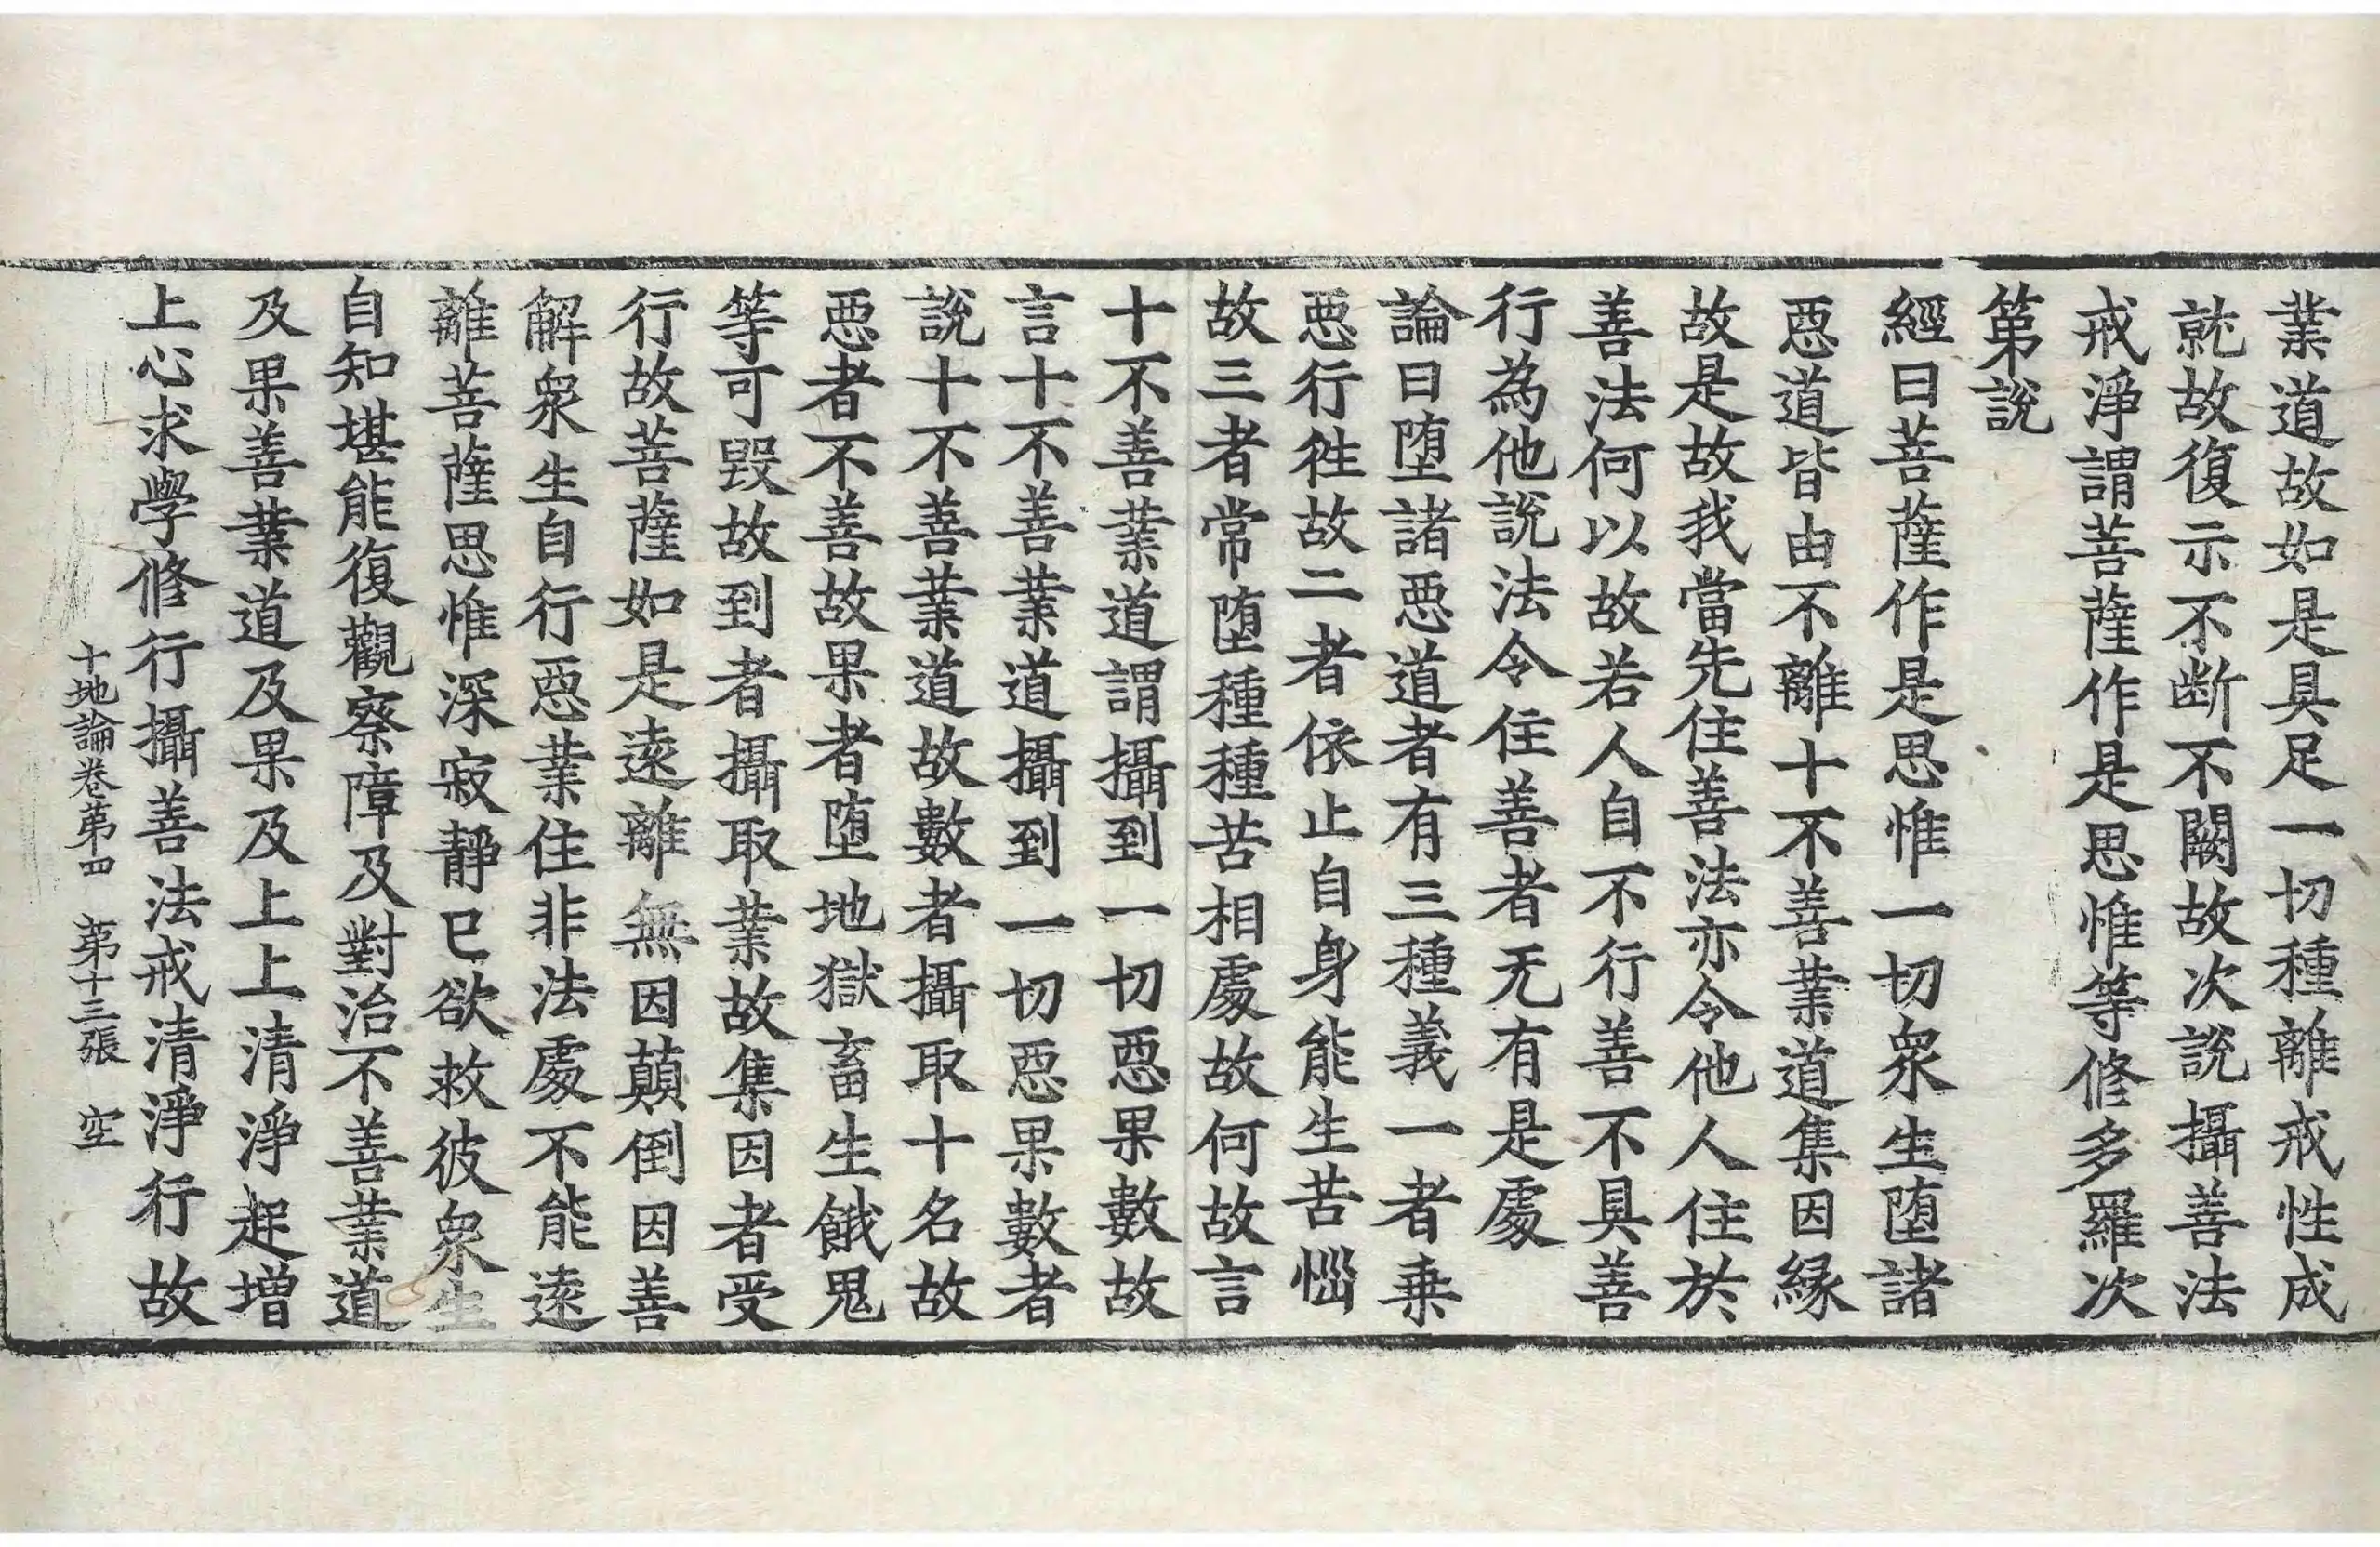 業道故如是具足一切種離戒性成
就故復示不断不闕故次說攝善法
戒淨謂菩薩作是思惟等修多羅次
第說
經曰菩薩作是思惟一切衆生墮諸
惡道皆由不離十不善業道集因縁
故是故我當先住善法亦令他人住於
善法何以故若人自不行善不具善
行為他說法令住善者无有是處
論曰墮諸悪道者有三種義一者乗
悪行徃故二者依止自身能生苦惱
故三者常墮種種苦相處故何故言
十不善業道謂攝到一切惡果數故
言十不善業道攝到一切惡果數者
說十不善業道故數者攝取十名故
悪者不善故果者墮地獄畜生餓鬼
等可毀故到者攝取業故集因者受
行故菩薩如是遠離無因顛倒因善
解衆生自行惡業住非法處不能遠
離菩薩思惟深寂靜已欲救彼衆生
自知堪能復觀察障及對治不善業道
及果善業道及果及上上清淨起增
上心求學修行攝善法戒清淨行故
十地論卷第四 第十三張 空